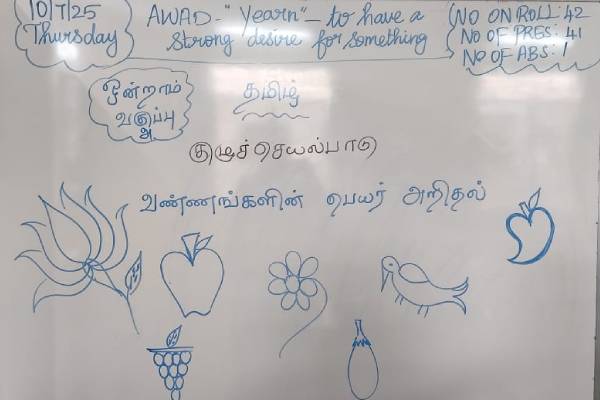 10/7/25
Thursday
AWAD-"Yearn"- to have a
strong desire for something
NO ON ROLL: 42
NO OF PRES: 41
NO OF ABS: 1
ஒன்றாம்
வகுப்பு
அ
தமிழ்
குழுச்செயல்பாடு
வண்ணங்களின் பெயர் அறிதல்